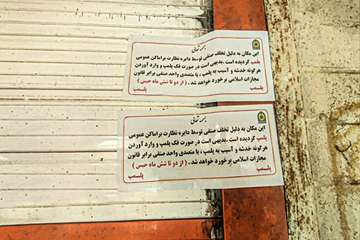 بسمه تعالی
این مکان به دلیل تخلف صنفی توسط دایره نظارت براماکن عمومی
پلمپ گردیده است .بدیهی است در صورت فک پلمپ و وارد آوردن
هرگونه خدشه و آسیب به پلمپ ، با متصدی واحد صنفی برابر قانون
مجازات اسلامی برخورد خواهد شد . ( از دو تا شش ماه حبس )
پلمپ
پلمپ
بسمه تعالی
این مکان به دلیل تخلف صنفی توسط دایره نظارت براماکن عمومی
پلمپ گردیده است .بدیهی است در صورت فک پلمپ و وارد آوردن
هرگونه خدشه و آسیب به پلمپ ، با متصدی واحد صنفی برابر قانون
مجازات اسلامی برخورد خواهد شد . ( از دو تا شش ماه حبس )
پلمپ
پلمپ